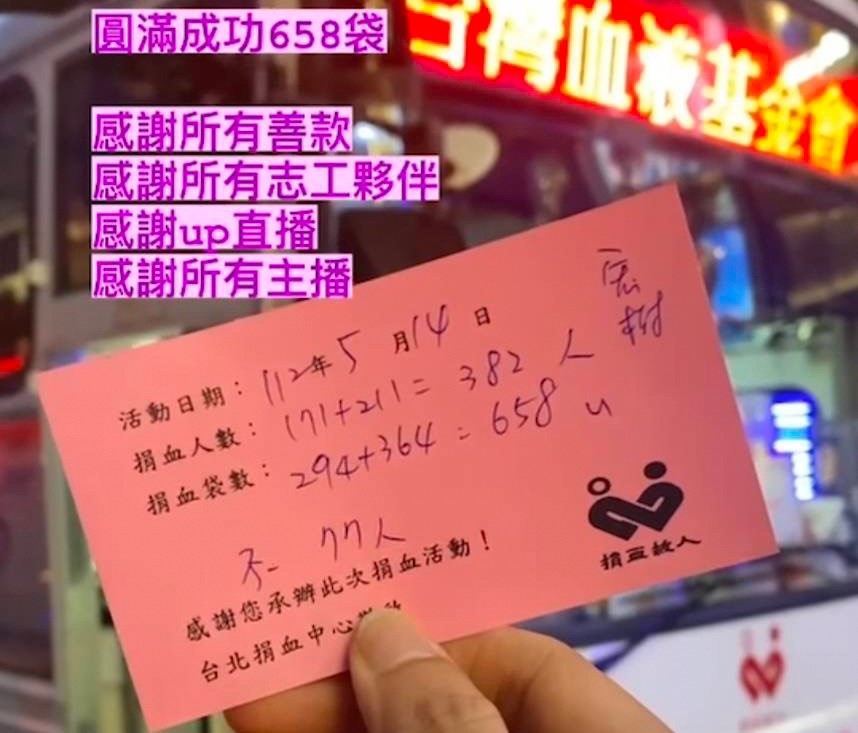 圓滿成功658袋
感謝所有善款
感謝所有志工夥伴
感謝up直播
感謝所有主播
台灣血液基金會
活動日期：112年5月14日
捐血人數：171+211=382人
捐血袋數：294+364=658u
77人
感謝您承辦此次捐血活動！
台北捐血中心
捐血救人